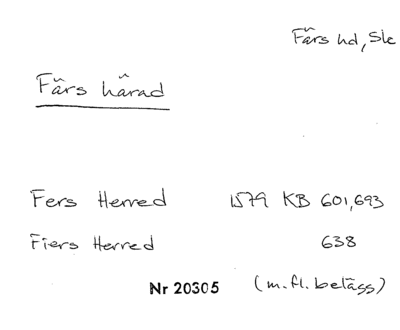 Färs hd, Sk
Färs härad
Fers Herred 1579 KB 601,693
Fiers Herred 638
Nr 20305 (m.fl. belägg)